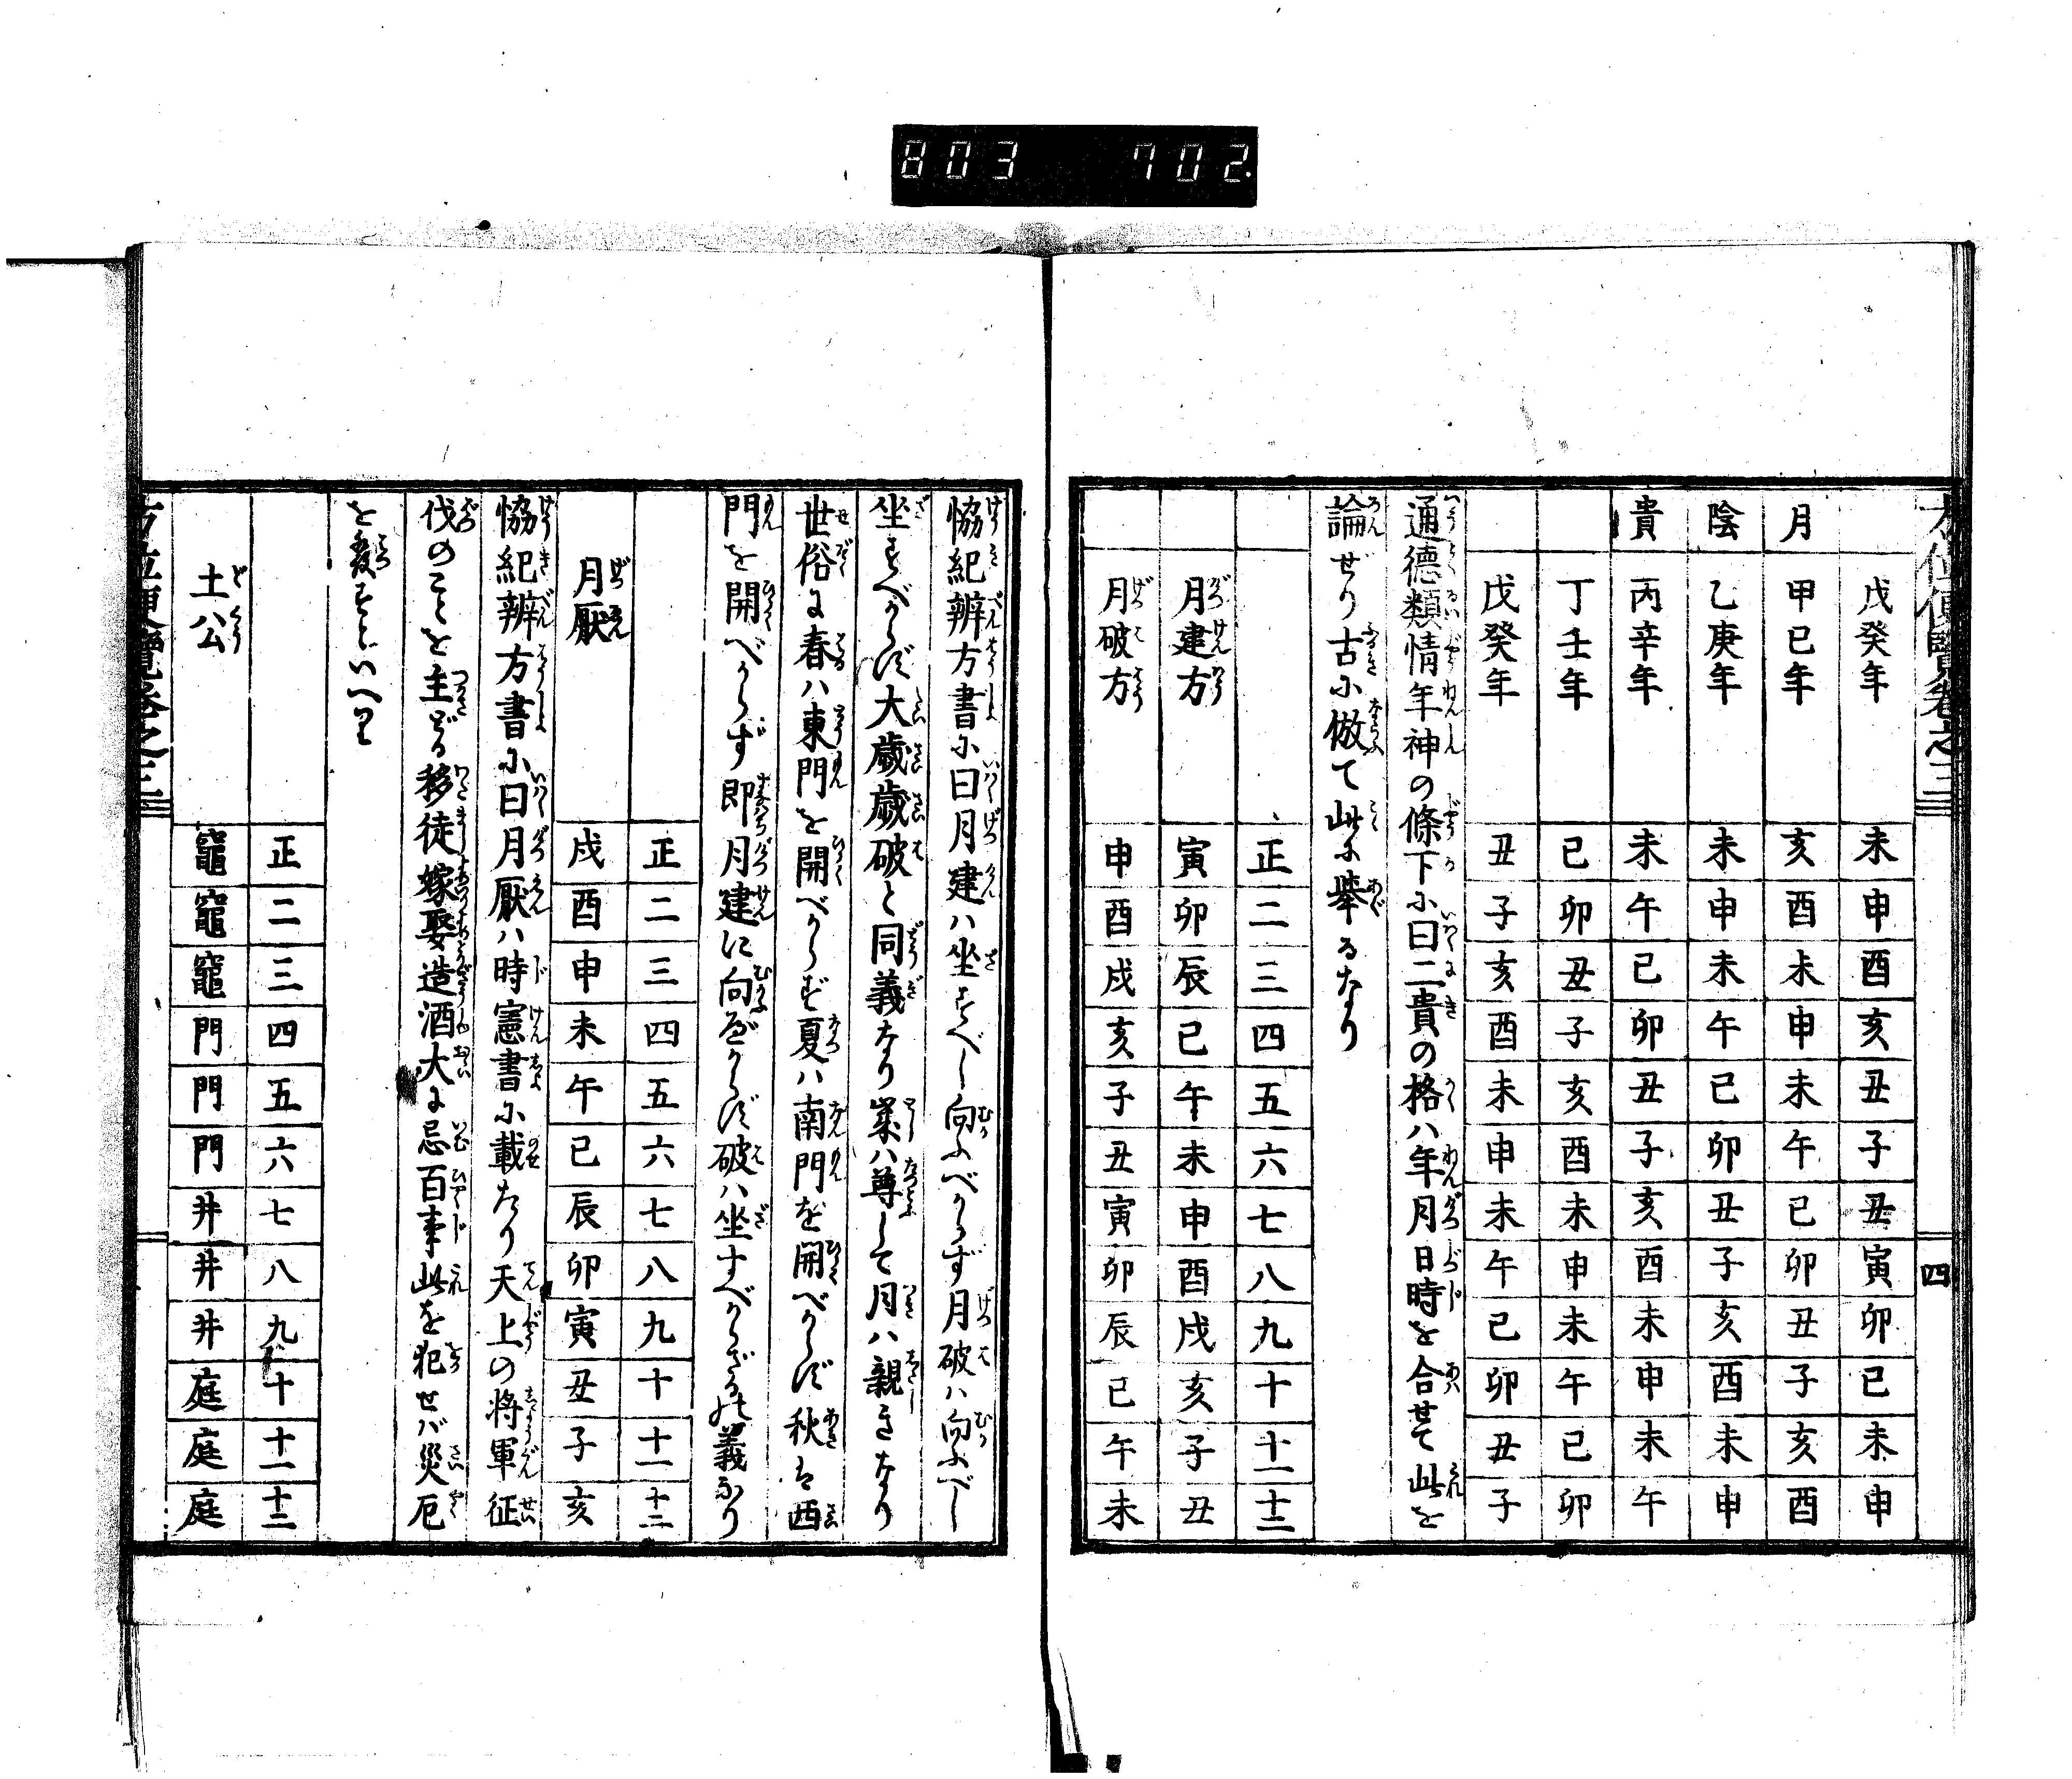 803 702
方位便覽卷之三
四
戊癸年 未 申 酉 亥 丑 子 丑 寅 卯 巳 未 申
月 甲己年 亥 酉 未 申 未 午 巳 卯 丑 子 亥 酉
陰 乙庚年 未 申 未 午 巳 卯 丑 子 亥 酉 未 申
貴 丙辛年 未 午 巳 卯 丑 子 亥 酉 未 申 未 午
丁壬年 巳 卯 丑 子 亥 酉 未 申 未 午 巳 卯
戊癸年 丑 子 亥 酉 未 申 未 午 巳 卯 丑 子
通德類情年神の條下に曰二貴の格八年月日時を合せて此を
論ぜり古に倣て此に舉るなり
正 二 三 四 五 六 七 八 九 十 十一 十二
月建方 寅 卯 辰 巳 午 未 申 酉 戌 亥 子 丑
月破方 申 酉 戌 亥 子 丑 寅 卯 辰 巳 午 未
協紀辨方書に曰月建ハ坐すべし向ふべからず月破ハ向ふべし
坐すべからず大歲歲破と同義なり歲ハ尊して月ハ親きなり
世俗に春ハ東門を開べからず夏ハ南門を開べからず秋は西
門を開べからず即月建に向べからず破ハ坐すべからざるの義なり
正 二 三 四 五 六 七 八 九 十 十一 十二
月厭 戌 酉 申 未 午 巳 辰 卯 寅 丑 子 亥
協紀辨方書に曰月厭ハ時憲書に載たり天上の将軍征
伐のことを主どる移徒嫁娶造酒大に忌百事此を犯せバ災厄
を發すといへり
正 二 三 四 五 六 七 八 九 十 十一 十二
土公 竈 竈 竈 門 門 門 井 井 井 庭 庭 庭
方位便覽卷之三